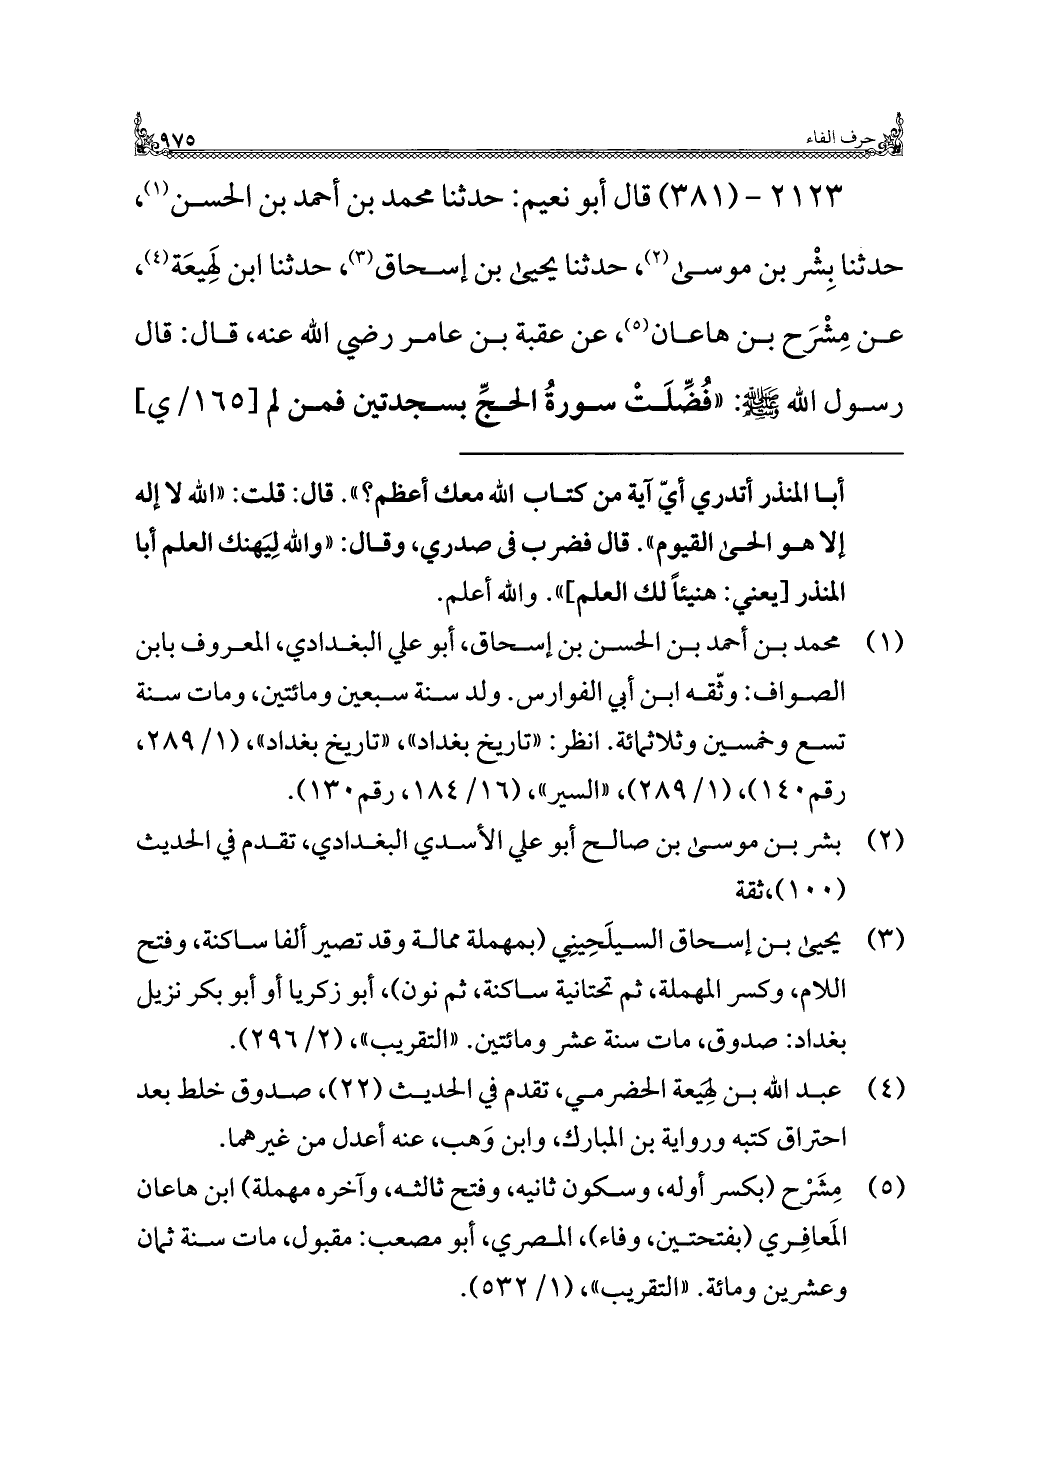 حرف الفاء ٩٧٥
٢١٢٣ - (٣٨١) قال أبو نعيم: حدثنا محمد بن أحمد بن الحسن(١)،
حدثنا بِشْر بن موسىٰ(٢)، حدثنا يحيىٰ بن إسحاق(٣)، حدثنا ابن لَهِيعَة(٤)،
عن مِشْرَح بن هاعان(٥)، عن عقبة بن عامر رضي الله عنه، قال: قال
رسول الله ﷺ: «فُضِّلَتْ سورةُ الحجِّ بسجدتين فمن لم [١٦٥/ ي]
أبا المنذر أتدري أيّ آية من كتاب الله معك أعظم؟». قال: قلت: «الله لا إله
إلا هو الحىٰ القيوم». قال فضرب فى صدري، وقال: «والله لِيَهنك العلم أبا
المنذر [يعني: هنيئاً لك العلم]». والله أعلم.
(١) محمد بن أحمد بن الحسن بن إسحاق، أبو علي البغدادي، المعروف بابن
الصواف: وثّقه ابن أبي الفوارس. ولد سنة سبعين ومائتين، ومات سنة
تسع وخمسين وثلاثمائة. انظر: «تاريخ بغداد»، «تاريخ بغداد»، (١/ ٢٨٩،
رقم١٤٠)، (١/ ٢٨٩)، «السير»، (١٦/ ١٨٤، رقم١٣٠).
(٢) بشر بن موسىٰ بن صالح أبو علي الأسدي البغدادي، تقدم في الحديث
(١٠٠)،ثقة
(٣) يحيىٰ بن إسحاق السيلَحِيني (بمهملة ممالة وقد تصير ألفا ساكنة، وفتح
اللام، وكسر المهملة، ثم تحتانية ساكنة، ثم نون)، أبو زكريا أو أبو بكر نزيل
بغداد: صدوق، مات سنة عشر ومائتين. «التقريب»، (٢/ ٢٩٦).
(٤) عبد الله بن لهِيعة الحضرمي، تقدم في الحديث (٢٢)، صدوق خلط بعد
احتراق كتبه ورواية بن المبارك، وابن وَهب، عنه أعدل من غيرهما.
(٥) مِشَرْح (بكسر أوله، وسكون ثانيه، وفتح ثالثه، وآخره مهملة) ابن هاعان
المَعافِري (بفتحتين، وفاء)، المصري، أبو مصعب: مقبول، مات سنة ثمان
وعشرين ومائة. «التقريب»، (١/ ٥٣٢).